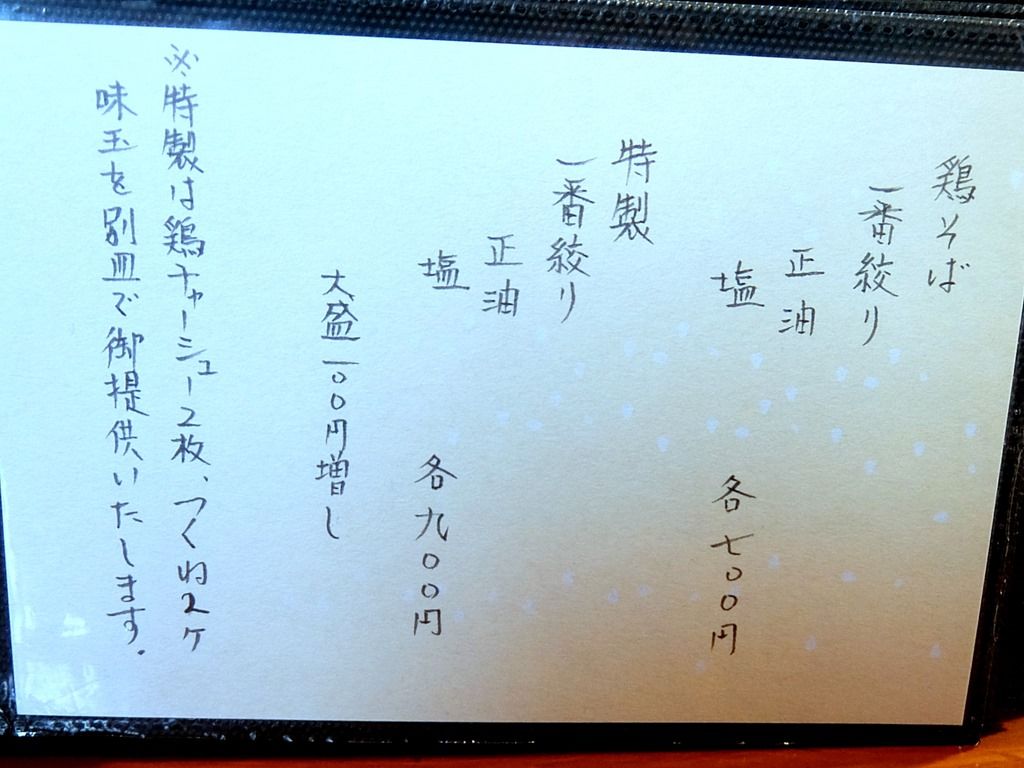 鶏そば
一番絞り
正油
塩
各七00円
特製
一番絞り
正油
塩
各九00円
大盛一00円増し
※特製は鶏チャーシュー2枚、つくね2ケ
味玉を別皿で御提供いたします.